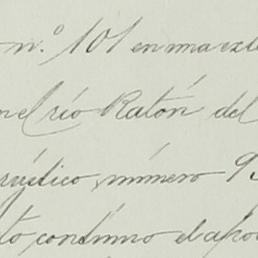 nº 101 en una exte
el río Ratón del
rústico, número 93
continuo el apo